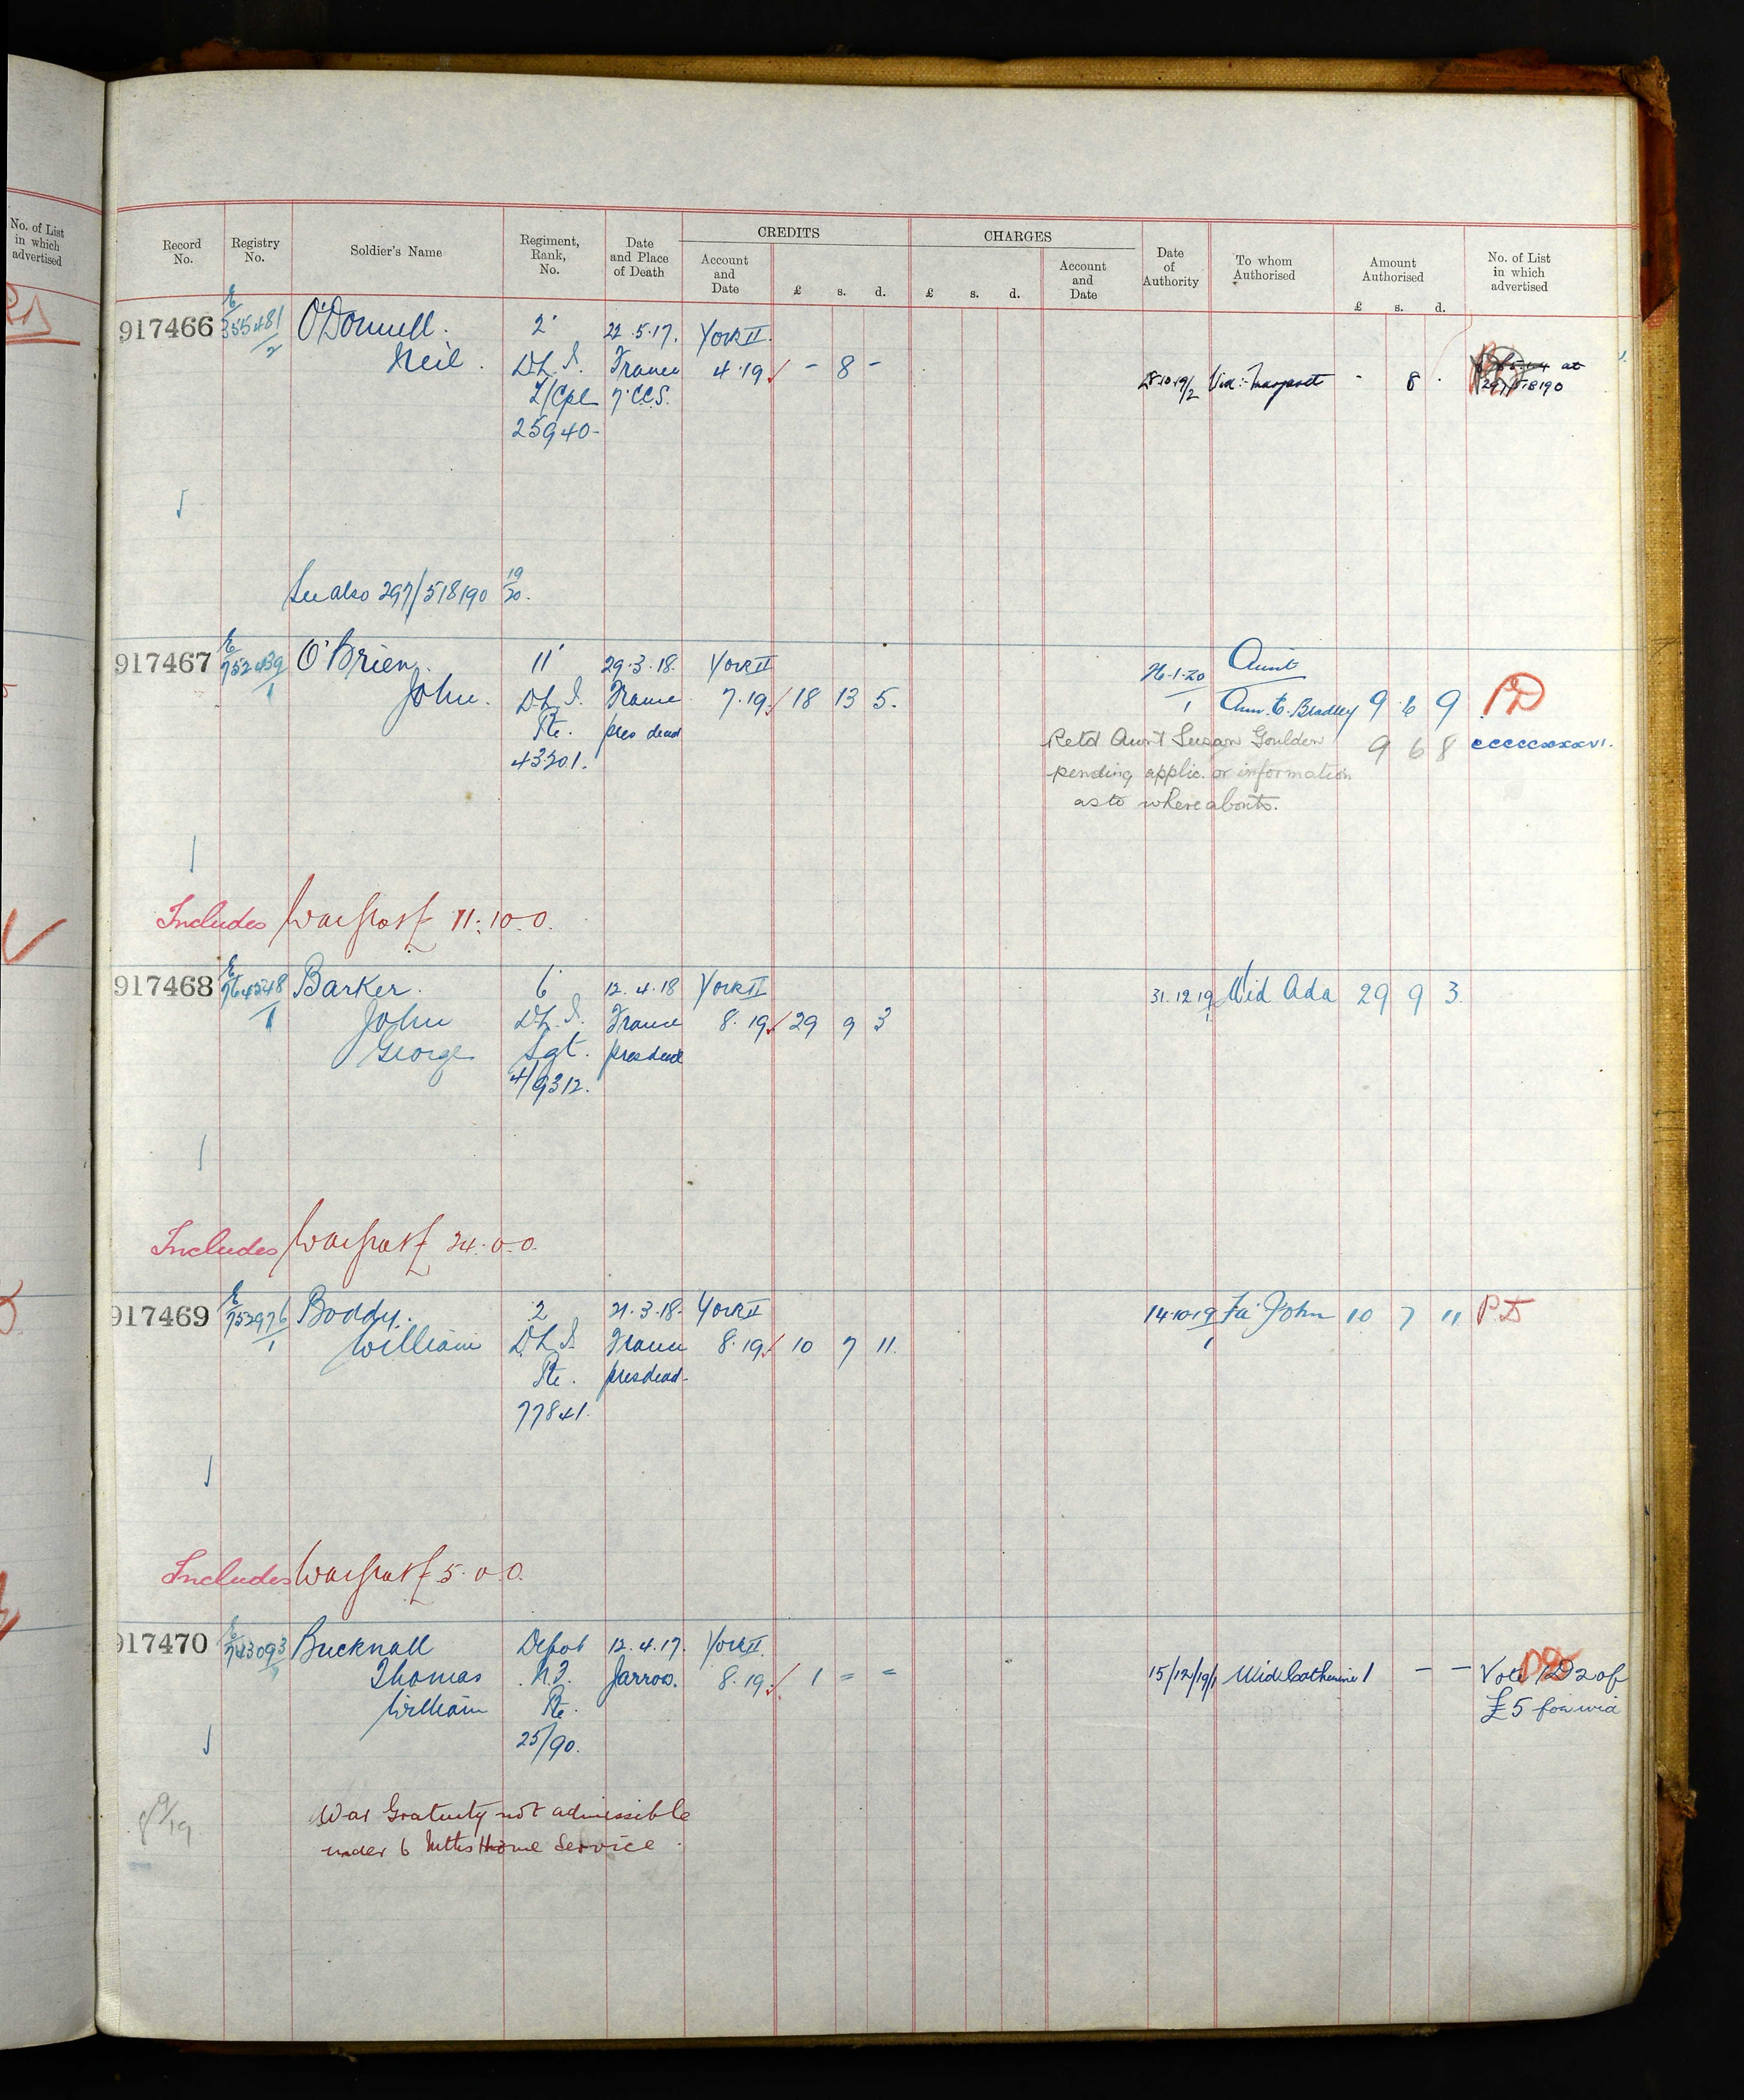 No. of List
in which
advertised
Record No. Registry No. Soldier's Name Regiment, Rank, No. Date and Place of Death CREDITS Account and Date £ s. d. CHARGES £ s. d. Account and Date Date of Authority To whom Authorised Amount Authorised £ s. d. No. of List in which advertised
917466 E 355481/2 O'Donnell. 2' 22.5.17. York II.
Neil. D.L.I. France 4.19 - 8 - 28.10.19/2 Wid: Margaret - 8 . at
L/Cpl 7 C.C.S. 297/518190
25940-
See also 297/518190 19/20.
917467 E 752439/1 O'Brien. 11' 29.3.18. York II 26-1-20/1 Aunt
John. D.L.I. France 7.19 18 13 5. Ann. E. Bradley 9 6 9 PD
Pte. pres dead Retd Aunt Susan Goulden 9 6 8 cccccxxxxvi.
43201. pending applic. or information
as to whereabouts.
Includes War Grat £ 11.10.0.
917468 E 764248/1 Barker. 6' 12.4.18 York II 31.12.19/1 Wid Ada 29 9 3.
John D.L.I. France 8.19 29 9 3
George Sgt. pres dead
4/9312.
Includes War Grat £ 24.0.0.
917469 E 752976/1 Boddy. 2 21.3.18. York II 14.10.19/1 Fa: John 10 7 11 PD
William D.L.I. France 8.19 10 7 11.
Pte. pres dead.
77841.
Includes War Grat £ 5.0.0.
917470 E 743093/1 Bucknall Depot 12.4.17. York II.
Thomas N.F. Jarrow. 8.19 1 - - 15/12/19/1 Wid: Catherine 1 - - Vote of
William Pte. £5 for wid
25/90.
9/19
War Gratuity not admissible
under 6 Mths Home Service.